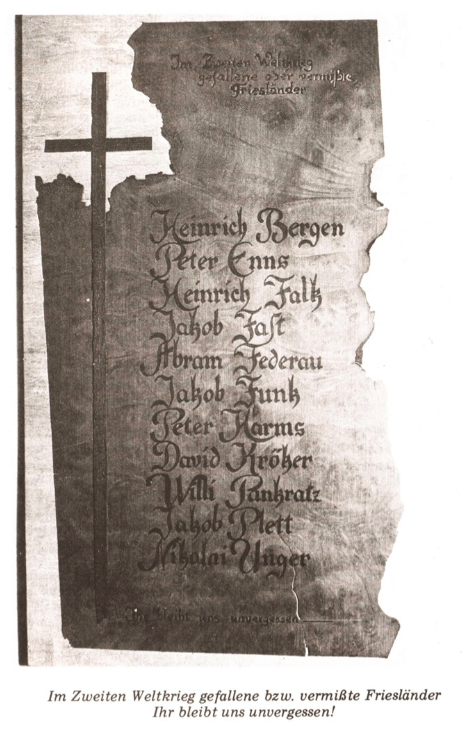 Im Zweiten Weltkrieg
gefallene oder vermißte
Friesländer
Heinrich Bergen
Peter Enns
Heinrich Falk
Jakob Fast
Abram Federau
Jakob Funk
Peter Harms
David Kröker
Willi Pankratz
Jakob Plett
Nikolai Unger
Ihr bleibt uns unvergessen
Im Zweiten Weltkrieg gefallene bzw. vermißte Friesländer
Ihr bleibt uns unvergessen!